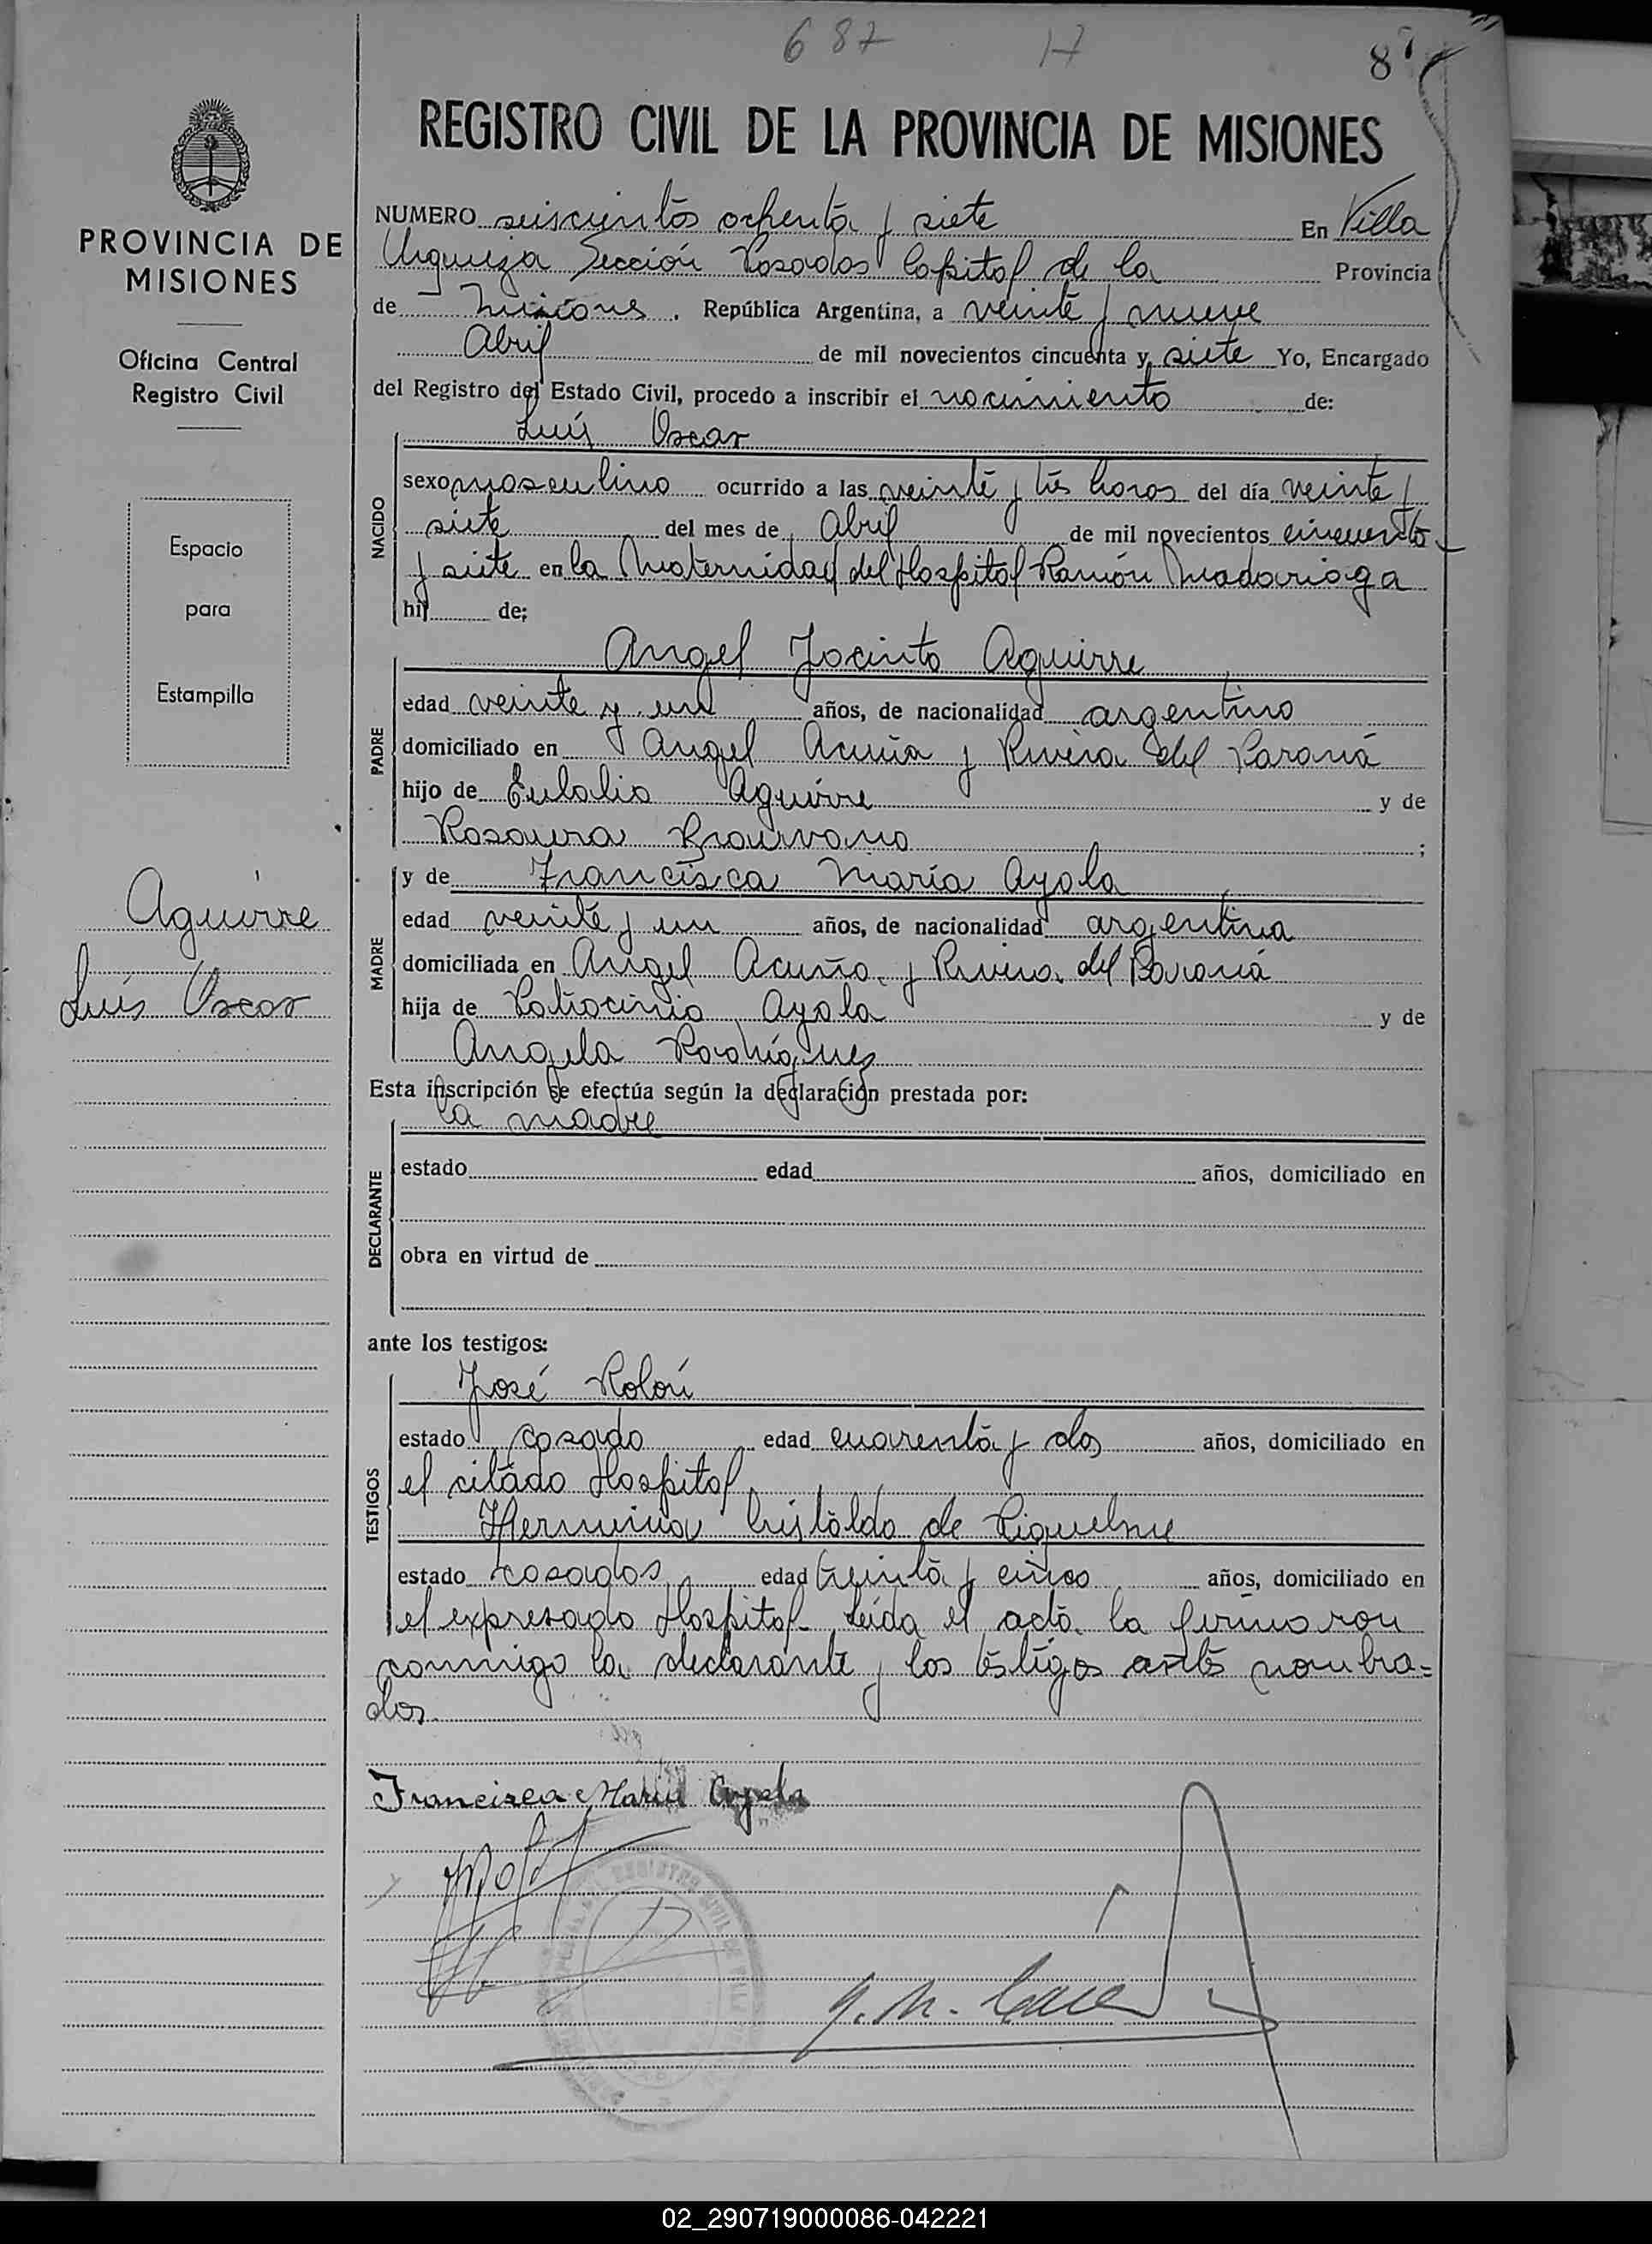 687 17 87
REGISTRO CIVIL DE LA PROVINCIA DE MISIONES
PROVINCIA DE
MISIONES
Oficina Central
Registro Civil
Espacio
para
Estampilla
Aguirre
Luís Oscar
NUMERO seiscientos ochenta y siete En Villa
Urquiza Sección Posadas Capital de la Provincia
de Misiones . República Argentina, a veinte y nueve
Abril de mil novecientos cincuenta y siete Yo, Encargado
del Registro del Estado Civil, procedo a inscribir el nacimiento de:
Luís Oscar
NACIDO
sexo masculino ocurrido a las veinte y tres horas del día veinte y
siete del mes de Abril de mil novecientos cincuenta
y siete en la Maternidad del Hospital Ramón Madariaga
hij de;
Angel Jacinto Aguirre
PADRE
edad veinte y un años, de nacionalidad argentino
domiciliado en Angel Acuña y Rivera del Paraná
hijo de Eulalio Aguirre y de
Rosaura ;
MADRE
y de Francisca María Ayala
edad veinte y un años, de nacionalidad argentina
domiciliada en Angel Acuña y Rivera del Paraná
hija de Patrocinio Ayala y de
Angela Rodríguez
Esta inscripción se efectúa según la declaración prestada por:
la madre
DECLARANTE
estado edad años, domiciliado en
obra en virtud de
ante los testigos:
TESTIGOS
José Rolón
estado casado edad cuarenta y dos años, domiciliado en
el citado Hospital
Herminia Cristaldo de Riquelme
estado casados edad treinta y cinco años, domiciliado en
el expresado Hospital Leída el acta la firmaron
conmigo la declarante y los testigos antes nombra=
dos
Francisca María Ayala
02_290719000086-042221